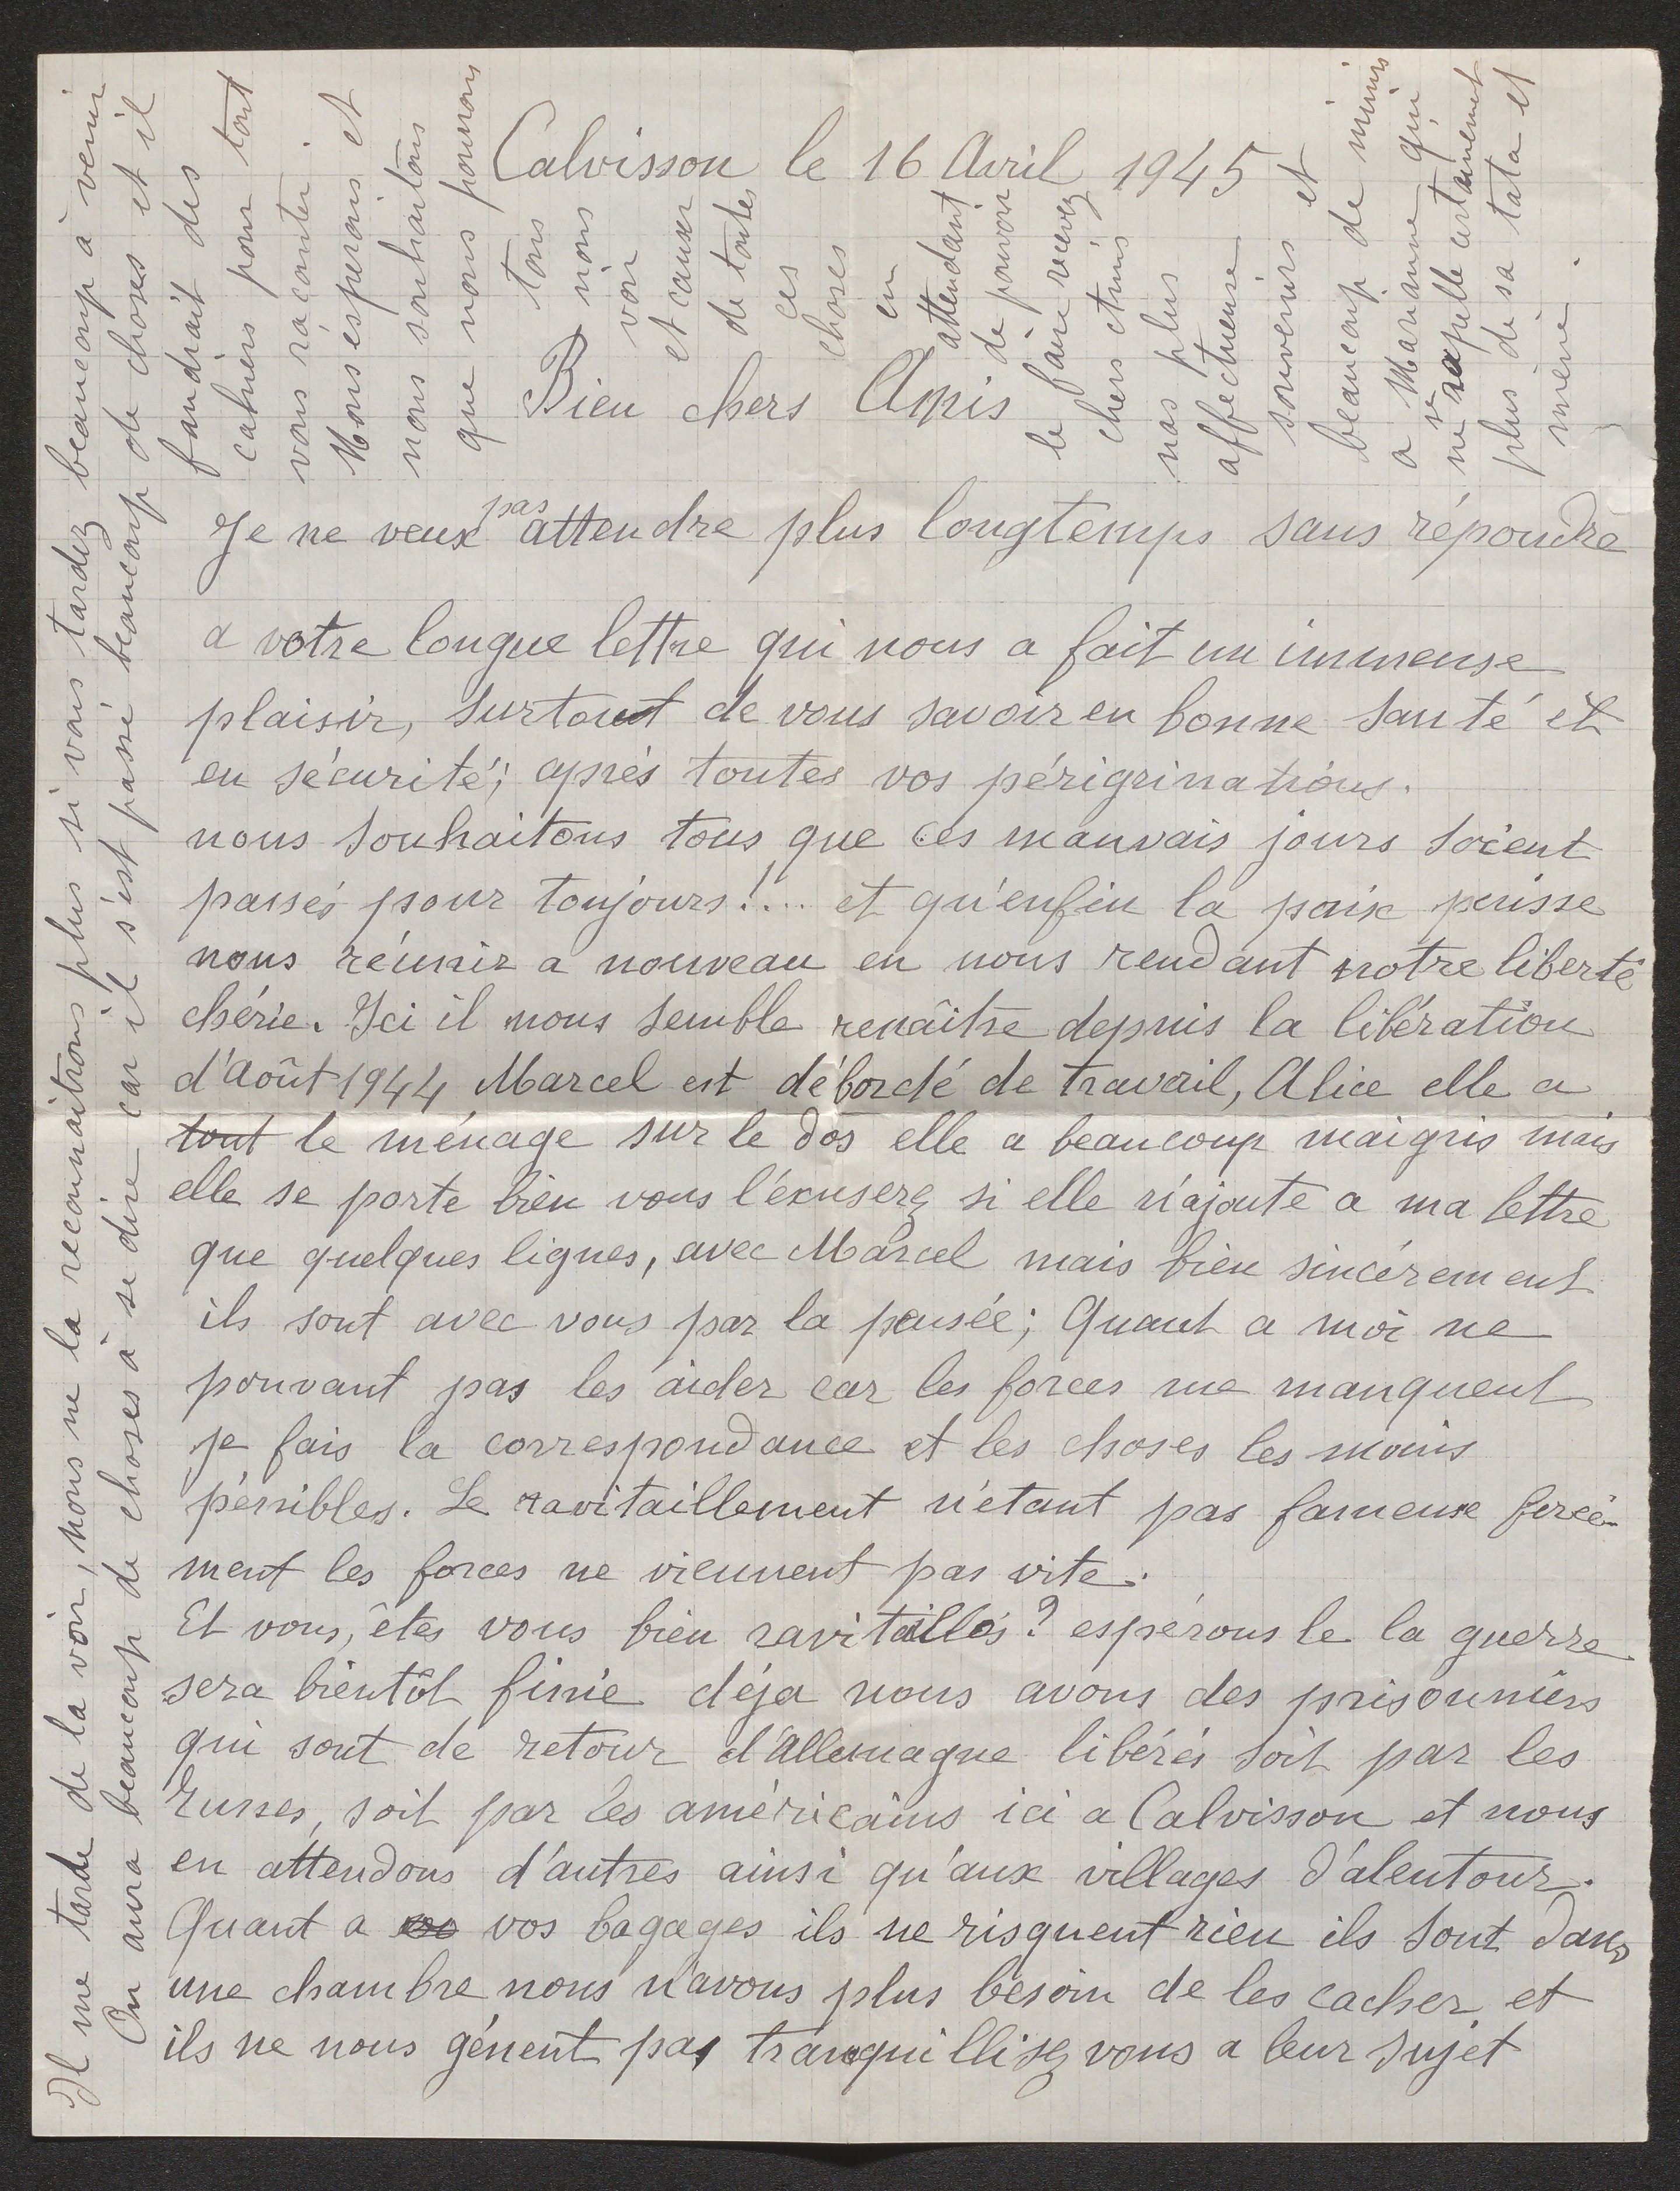 Calvisson le 16 Avril 1945
Bien chers Amis
Je ne veux pas attendre plus longtemps sans répondre
a votre longue lettre qui nous a fait un immense
plaisir, surtout de vous savoir en bonne santé et
en sécurité; aprés toutes vos périgrinations.
nous souhaitons tous que ces mauvais jours soient
passés pour toujours!... et qu'enfin la paix puisse
nous réunir a nouveau en nous rendant notre liberté
chérie. Ici il nous semble renaître depuis la libération
d'Août 1944 Marcel est débordé de travail, Alice elle a
tout le ménage sur le dos elle a beaucoup maigris mais
elle se porte bien vous l'éxuserez si elle n'ajoute a ma lettre
que quelques lignes, avec Marcel mais bien sincérement
ils sont avec vous par la pensée; Quant a moi ne
pouvant pas les aider car les forces me manquent
je fais la correspondance et les choses les moins
pénibles. Le ravitaillement n'étant pas fameux forcé-
ment les forces ne viennent pas vite.
Et vous, êtes vous bien ravitaillés? espérons le la guerre
sera bientôt finie déja nous avons des prisonniers
qui sont de retour d'Allemagne libérés soit par les
Russes, soit par les américains ici a Calvisson et nous
en attendons d'autres ainsi qu'aux villages d'alentour.
Quant a vos bagages ils ne risquent rien ils sont dans
une chambre nous n'avons plus besoin de les cacher et
ils ne nous génent pas tranquillisez vous a leur sujet
Il me tarde de la voir, nous ne la reconnaitrons plus si vous tardez beaucoup à venir
On aura beaucoup de choses à se dire car il s'est passé beaucoup de choses et il
faudrait des
cahiers pour tout
vous raconter.
Nous esperons et
nous souhaitons
que nous pourrons
tous
nous
voir
et causer
de toutes
ces
choses
en
attendant
de pouvoir
le faire recevez
chers amis
nos plus
affectueuse
souvenirs et
beaucoup de mimis
a Marianne qui
ne se rapelle certainement
plus de sa tata et
mémé.